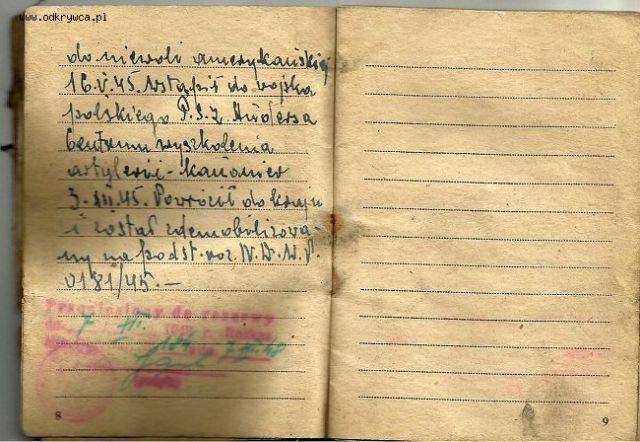 www.odkrywca.pl
do niewoli amerykańskiej
16.V.45. wstąpił do wojska
polskiego P.S.Z. Andersa
Centrum wyszkolenia
artylerii - kanonier
3.XII.45. Powrócił do kraju
i został zdemobilizowa-
ny na podst. roz. N.D.W.P.
0181/45.—
Przeniesiony do rezerwy
7 III.
184
8
9